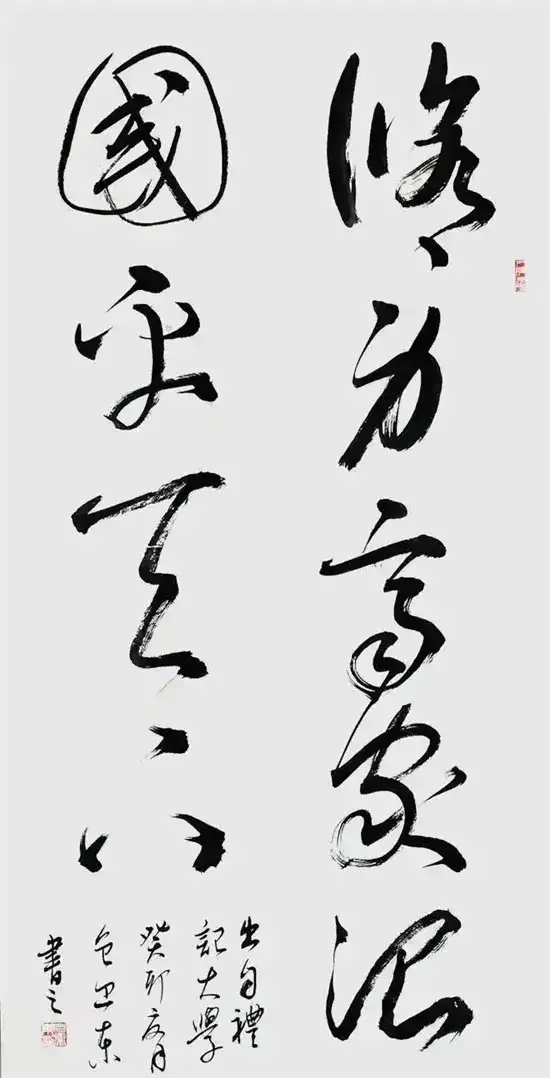 修身齊家治
國平天下
出自禮
記大學
癸卯夏月
包卫东
書之